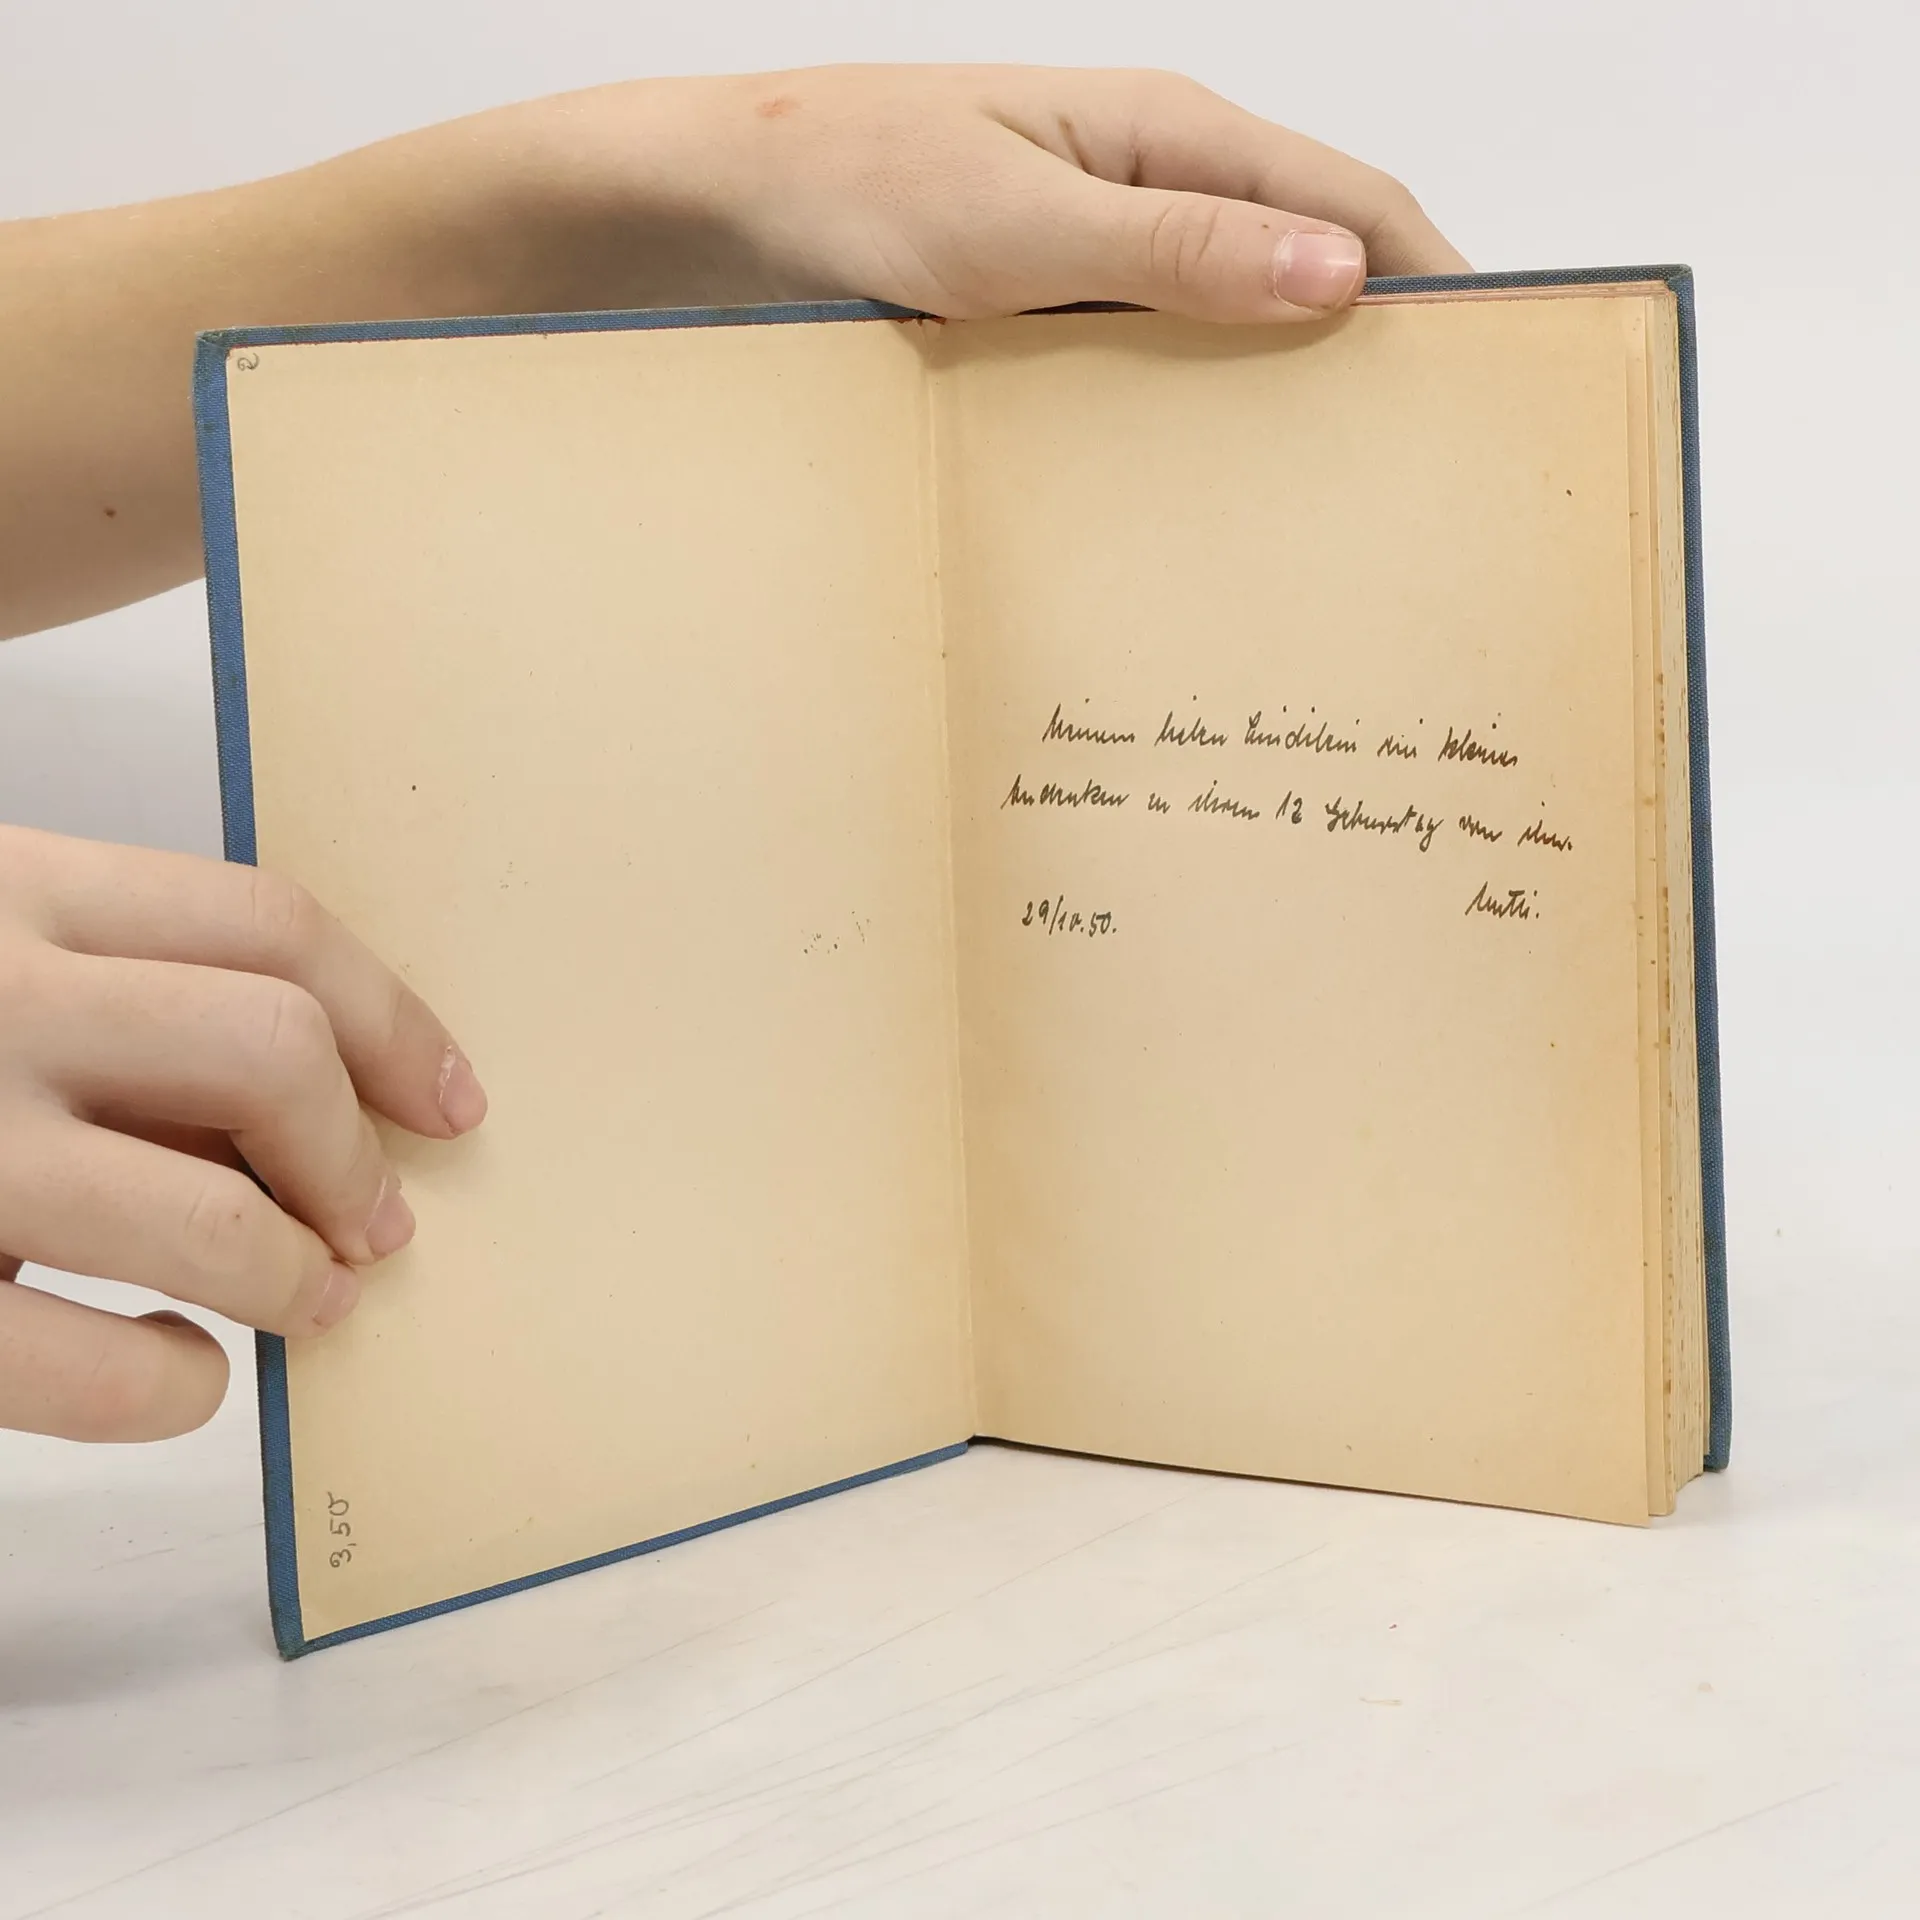 2
3,50
Meinem lieben ein kleines
Andenken zu ihrem 12 Geburtstag von ihr.
Mutti.
29/10.50.